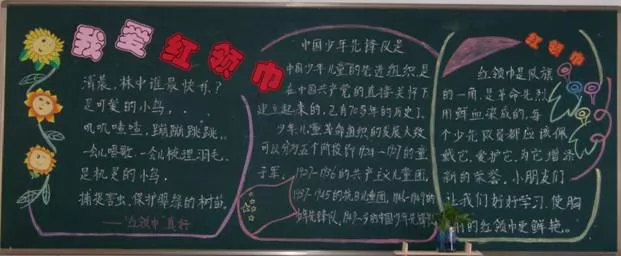 我爱红领巾
清晨，林中谁最快乐？
是可爱的小鸟，
叽叽喳喳，蹦蹦跳跳。
一会儿唱歌，一会儿梳理羽毛。
是机灵的小鸟，
捕捉害虫，保护翠绿的树苗。
——"红领巾"真好
中国少年先锋队是
中国少年儿童的先进组织，是
在中国共产党的直接关怀下
建立起来的，已有70多年的历史了。
少年儿童革命组织的发展大致
可以分为五个阶段
1924-1927的童
子军，1927-1936的共产主义儿童团，
1937-1945的抗日儿童团，1946-1949的
少年先锋队，1949-今的中国少年先锋队
红领巾
红领巾是队旗
的一角，是革命先烈
用鲜血染成的，每
个少先队员都应该佩
戴它，爱护它，为它增添
新的荣誉。小朋友们
让我们好好学习，使胸
前的红领巾更鲜艳。